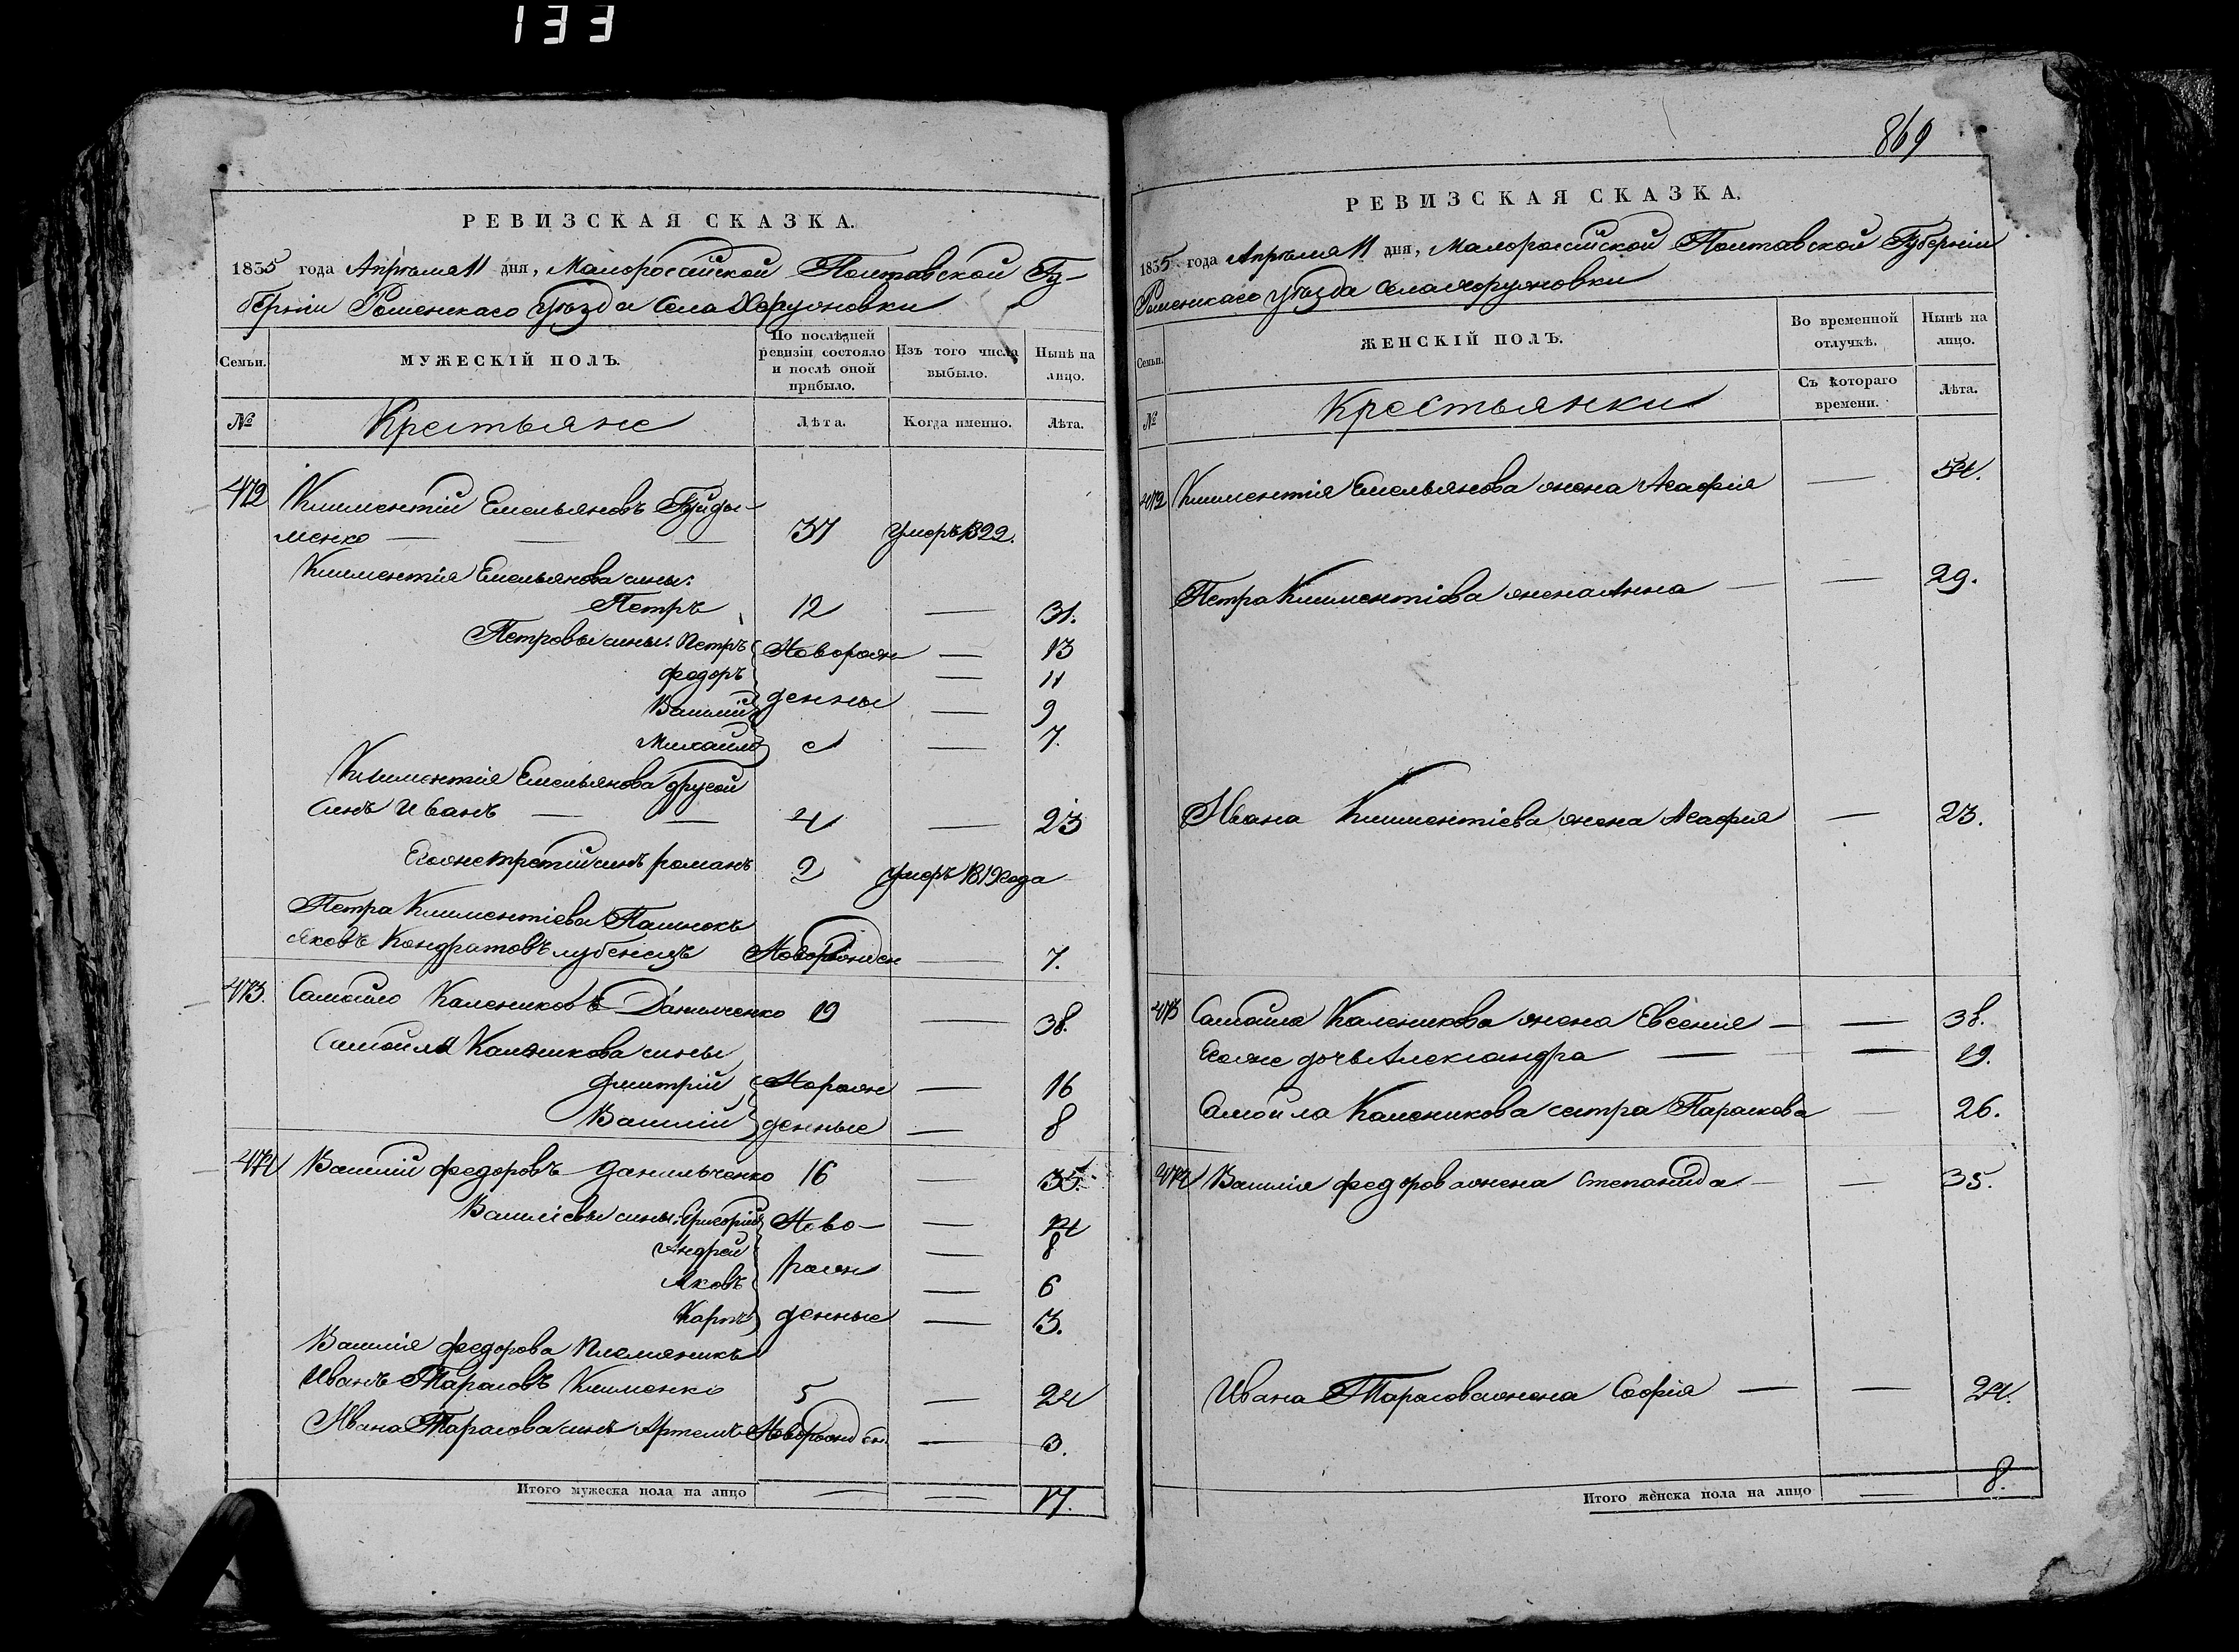 133
869
РЕВИЗСКАЯ СКАЗКА.
1835 года Апрѣля 11 дня, Малороссійской Полтавской Гу-
берніи Роменскаго Уѣзда Села
МУЖЕСКІЙ ПОЛЪ.
Семьи.
По послѣдней ревизіи состояло и послѣ оной прибыло.
Изъ того числа выбыло.
Нынѣ на лицо.
№ Крестьяне Лѣта. Когда именно. Лѣта.
472 Климентій Емельяновъ
менко — — — 37 умеръ 1822.
Климентія Емельянова сины:
Петръ 12 — 31.
Петровы сины: Петръ Новорож — 13
Федоръ — 11
Василій денны — 9
Михаило е — 7.
Климентія Емельянова другой
синъ Иванъ — — 4 — 23
Егоже третій синъ романъ 2 умеръ 1819 года
Петра Климентіева
Яковъ Кондратовъ Новорожден — 7.
473. Самойло Калениковъ Данильченко 19 — 38.
Самойла Каленикова сины
Дмитрій Норож — 16
Василій денные — 8
474 Василій Федоровъ Данильченко 16 — 35.
Василіевы сины: Григорій Ново — — 14
Андрей — 8
Яковъ рож — 6
Карпъ денные — 3.
Василія Федорова племяникъ
Иванъ Тарасовъ Клименко 5 — 24
Ивана Тарасова синъ Артемъ Новорожден. — 3.
Итого мужеска пола на лицо — — 17.
РЕВИЗСКАЯ СКАЗКА.
1835 года Апрѣля 11 дня, Малороссійской Полтавской Губерніи
Роменскаго уѣзда села
Семьи.
ЖЕНСКІЙ ПОЛЪ.
Во временной отлучкѣ.
Нынѣ на лицо.
№ Крестьянки Съ котораго времени. Лѣта.
472 Климентія Емельянова жена Агафія — 54.
Петра Климентіева жена Анна — — 29.
Ивана Климентіева жена Агафия — 23.
473 Самойла Каленикова жена Евгенія — — 38.
Егоже дочь Александра — — 19.
Самойла Каленикова сестра Параскова — 26.
474 Василія Федорова жена Степанида — — 35.
Ивана Тарасова жена Софія — — 24.
Итого женска пола на лицо — 8.